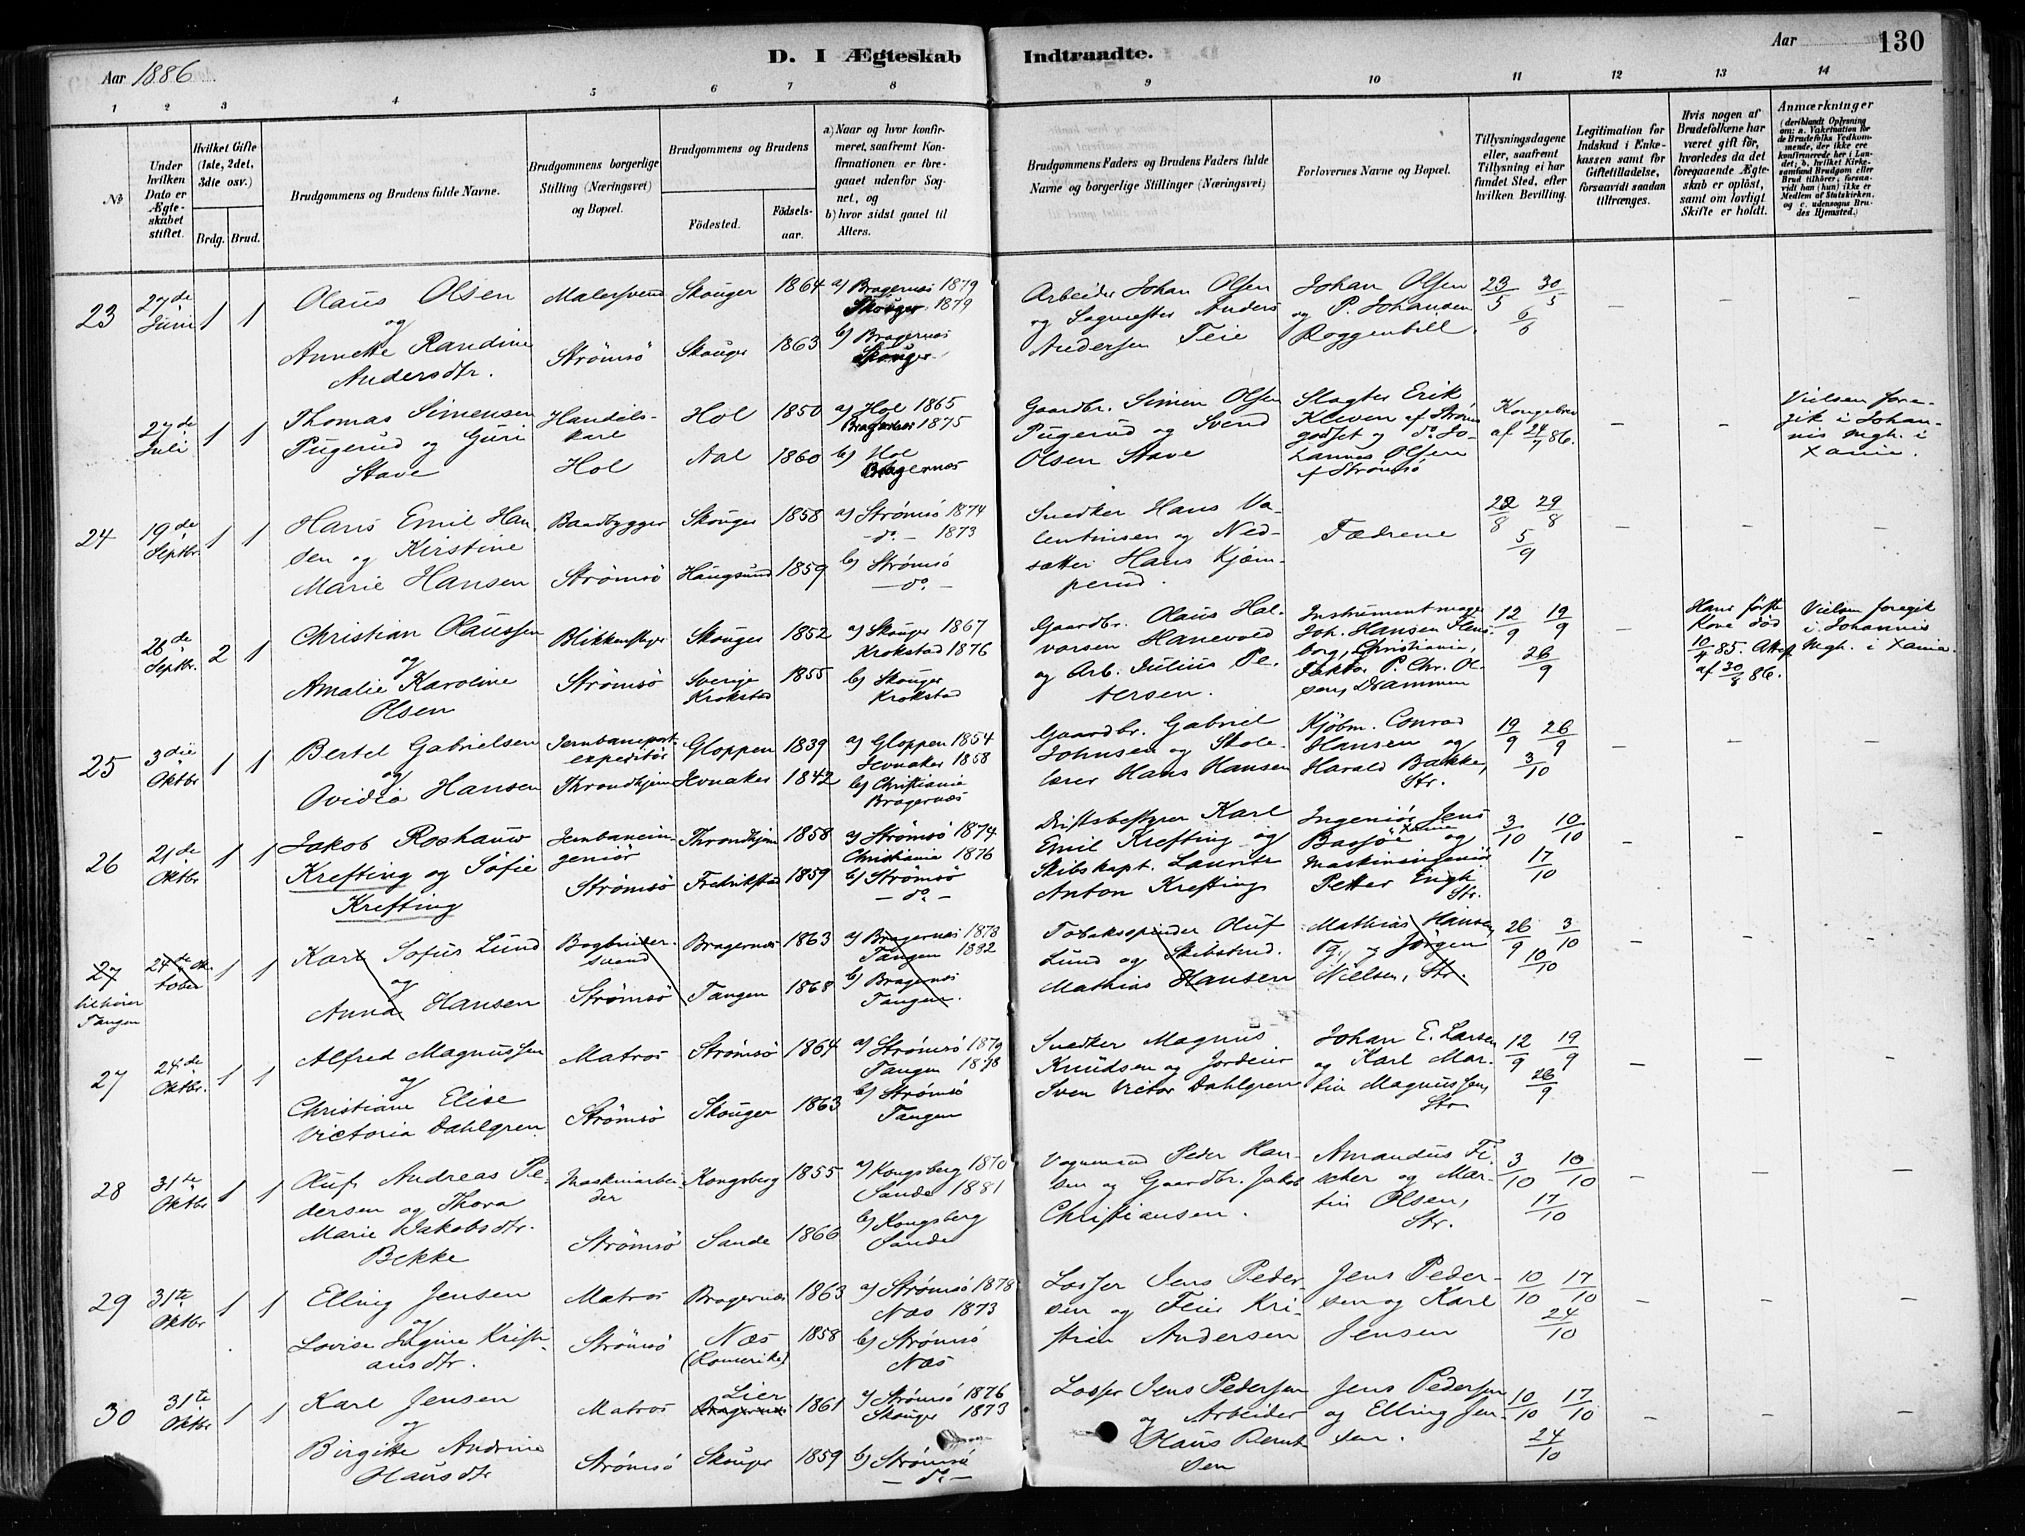 Aar 1886
D. I Ægteskab
Indtraadte.
Aar
130
1 2 3 4 5 6 7 8
9 10 11 12 13 14
No
Under hvilken Dato er Ægteskabet stiftet.
Hvilket Gifte (1ste, 2det, 3die osv.)
Brdg. Brud.
Brudgommens og Brudens fulde Navne.
Brudgommens borgerlige Stilling (Næringsvei) og Bopæl.
Brudgommens og Brudens
Födested.
Födselsaar.
a) Naar og hvor konfirmeret, saafremt Konfirmationen er foregaaet udenfor Sognet, og
b) hvor sidst gaaet til Alters.
Brudgommens Faders og Brudens Faders fulde Navne og borgerlige Stillinger (Næringsvei)
Forlovernes Navne og Bopæl.
Tillysningsdagene eller, saafremt Tillysning ei har fundet Sted, efter hvilken Bevilling.
Legitimation for Indskud i Enkekassen samt for Giftetilladelse, forsaavidt saadan tiltrænges.
Hvis nogen af Brudefolkene har været gift för, hvorledes da det foregaaende Ægteskab er oplöst, samt om lovligt Skifte er holdt.
Anmærkninger
23 27de Juni 1 1
Olaus Olsen
og
Annette Randine
Andersdtr.
Malersvend
Strömsö
Skouger 1864
Skouger 1863
a) Bragernæs 1879
Skouger 1879
b) Bragernæs
Skouger
Arbeider Johan Olsen
og Sagmester Anders
Andersen Teie
Johan Olsen
og P. Johansen
Roggenbill
23/5 30/5
6/6
27de Juli 1 1
Thomas Simensen
Pugerud og Guri
Stave
Handelskarl
Hol
Hol 1850
Aal 1860
a) Hol 1865
Bragernæs 1875
b) Hol
Bragernæs
Gaardbr. Simen Olsen
Pugerud og Svend
Olsen Stave
Slagter Erik
Kleven af Ström
godset og do. Johannes Olsen
af Strömsö
Kongebrev
af 24/7 86.
Vielsen foregik i Johannis Mgh. i
Xania.
24 19de Septbr. 1 1
Hans Emil Hansen og Kirstine
Marie Hansen
Baadbygger
Strömsö
Skouger 1858
Haugsund 1859
a) Strömsö 1874
do 1873
b) Strömsö
do
Snedker Hans Valentinsen og Nedsætter Hans Kjæmperud.
Fædrene
22/8 29/8
5/9
26de Septbr. 2 1
Christian Olaussen
og
Amalie Karoline
Olsen
Strömsö
Skouger 1852
Sverige
Krokstad 1855
a) Skouger 1867
Krokstad 1876
b) Skouger
Krokstad
Gaardbr. Olaus Halvorsen Hanevold
og Arb. Julius Petersen.
Instrumentmager
Joh. Hansen Flensborg, Christiania,
Faktor P. Chr. Olsen, Drammen
12/9 19/9
26/9
Hans förste
Kone död
10/4 85. Attest
af 30/8 86.
Vielsen foregik
i Johannis
Mgh. i Xania
25 3die Oktbr 1 1
Bertel Gabrielsen
og
Ovidia Hansen
Jernbaneexpeditör
Throndhjem
Gloppen 1839
Jevnaker 1842
a) Gloppen 1854
Jevnaker 1858
b) Christiania
Bragernæs
Gaardbr. Gabriel
Johnsen og Skolelærer Hans Hansen
Kjöbm. Conrad
Hansen og
Harald Bakke,
Str.
19/9 26/9
3/10
26 21de Oktbr 1 1
Jakob Roshauw
Krefting og Sofie
Krefting
Jernbaneingeniör
Strömsö
Throndhjem 1858
Fredrikstad 1859
a) Strömsö 1874
Christiania 1876
b) Strömsö
do
Driftsbestyrer Karl
Emil Krefting og
Skibskapt. Lauritz
Anton Krefting
Ingeniör Jens
Xania
og
Maskiningeniör
Petter Engh
Str.
3/10 10/10
17/10
27 24de Oktober 1 1
tilhører
Tangen
Karl Sofus Lund
og
Anna Hansen
Bogbindersvend
Strömsö
Bragernæs 1863
Tangen 1868
a) Bragernæs 1878
Tangen 1882
b) Bragernæs
Tangen.
Tobakspinder Oluf
Lund og Skibstmd.
Mathias Hansen
Mathias Hansen
Tg., og Jörgen
Nielsen, Str.
26/9 3/10
10/10
27 24de Oktbr. 1 1
Alfred Magnussen
og
Christiane Elise
Victoria Dahlgren
Matros
Strömsö
Strömsö 1864
Skouger 1863
a) Strömsö 1879
Tangen 1878
b) Strömsö
Tangen
Snedker Magnus
Knudsen og Jordeier
Sven Victor Dahlgren
Johan E. Larsen
og Karl Martin Magnussen,
Str
12/9 19/9
26/9
28 31te Oktbr 1 1
Oluf Andreas Pedersen og Thora
Marie Jakobsdtr.
Bekke
Maskinarbeider
Strömsö
Kongsberg 1855
Sande 1866
a) Kongsberg 1870
Sande 1881
b) Kongsberg
Sande
Vognmand Peder Hansen og Gaardbr. Jakob
Christiansen.
Amandus Fischer og Martin Olsen,
Str.
3/10 10/10
17/10
29 31te Oktbr 1 1
Elling Jensen
og
Lovise Kristiansdtr.
Matros
Strömsö
Bragernæs 1863
Næs 1858
(Romerike)
a) Strömsö 1878
Næs 1873
b) Strömsö
Næs
Losser Jens Pedersen og Feier Kristian Andersen
Jens Pedersen og Karl
Jensen
10/10 17/10
24/10
30 31te Oktbr 1 1
Karl Jensen
og
Birgitte Andrine
Hansdtr
Matros
Strömsö
Lier
Bragernæs 1861
Skouger 1859
a) Strömsö 1876
Skouger 1873
b) Strömsö
do
Losser Jens Pedersen
og Arbeider
Hans Berntsen
Jens Pedersen
og Elling Jensen.
10/10 17/10
24/10